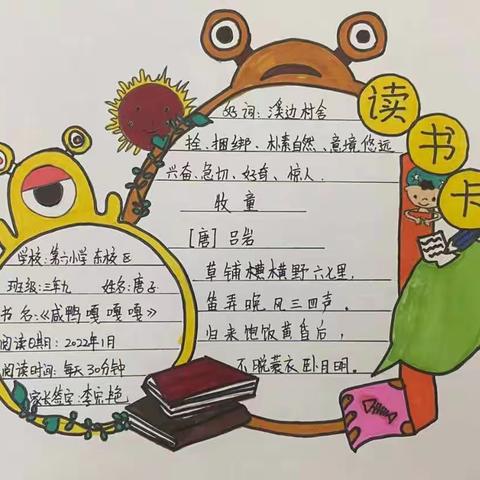 读书卡
好词：溪边村舍
拴、捆绑、朴素自然、意境悠远
兴奋、急切、好奇、惊人.
牧 童
[唐] 吕岩
草铺横横野六七里，
笛弄晚风三四声。
归来饱饭黄昏后，
不脱蓑衣卧月明。
学校：第六小学东校区
班级：三年九 姓名：唐子
书名：《咸鸭嘎嘎嘎》
阅读日期：2022年1月
阅读时间：每天30分钟
家长签字：李